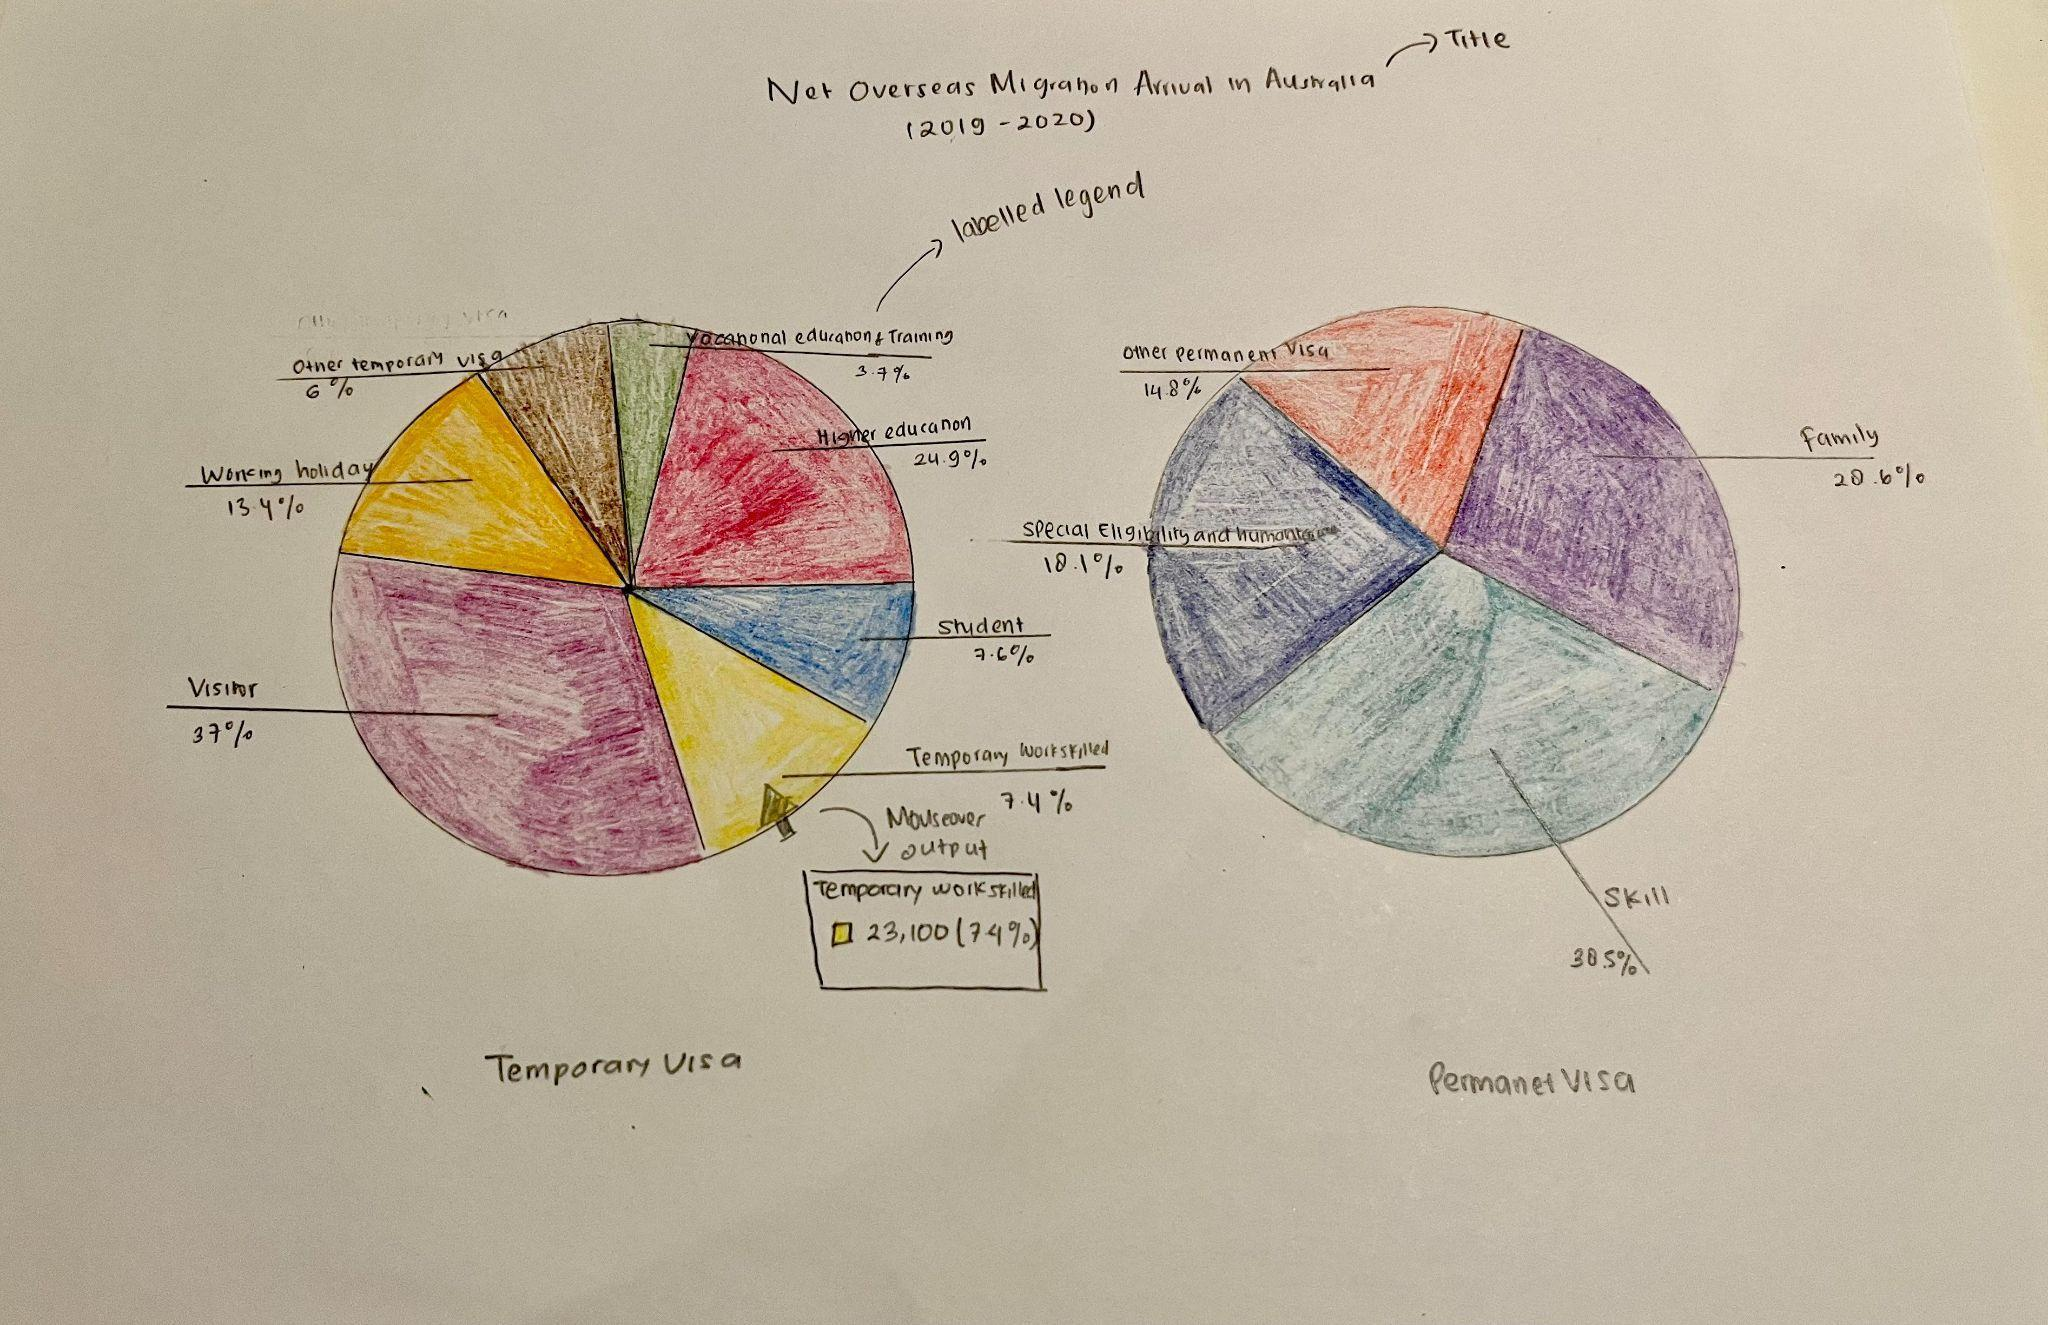 Title
Net Overseas Migration Arrival in Australia
(2019-2020)
labelled legend
Other temporary visa
6%
Vocational education & Training
3.7%
Higher education
24.9%
Working holiday
13.4%
Student
7.6%
Visitor
37%
Temporary work skilled
7.4%
Mouseover
output
Temporary work skilled
23,100 (7.4%)
Temporary Visa
Other permanent visa
14.8%
Family
28.6%
Special Eligibility and
18.1%
Skill
38.5%
Permanet Visa